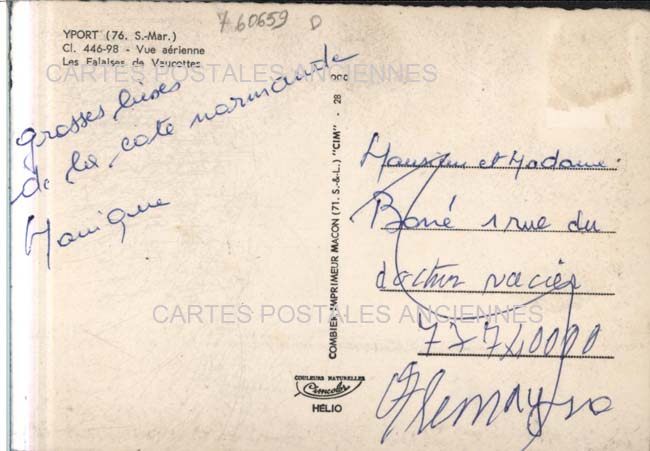 760659 D
YPORT (76. S.-Mar.)
Cl. 446-98 - Vue aérienne
Les Falaises de Vaucottes
CARTES POSTALES ANCIENNES
grosses bises
de la cote normande
Monique
COMBIER IMPRIMEUR MACON (71. S.-&-L.) "CIM" - 28
Monsieur et Madame
Boné 1 rue du
docteur vacier
CARTES POSTALES ANCIENNES
COULEURS NATURELLES
Cimcolor
HÉLIO